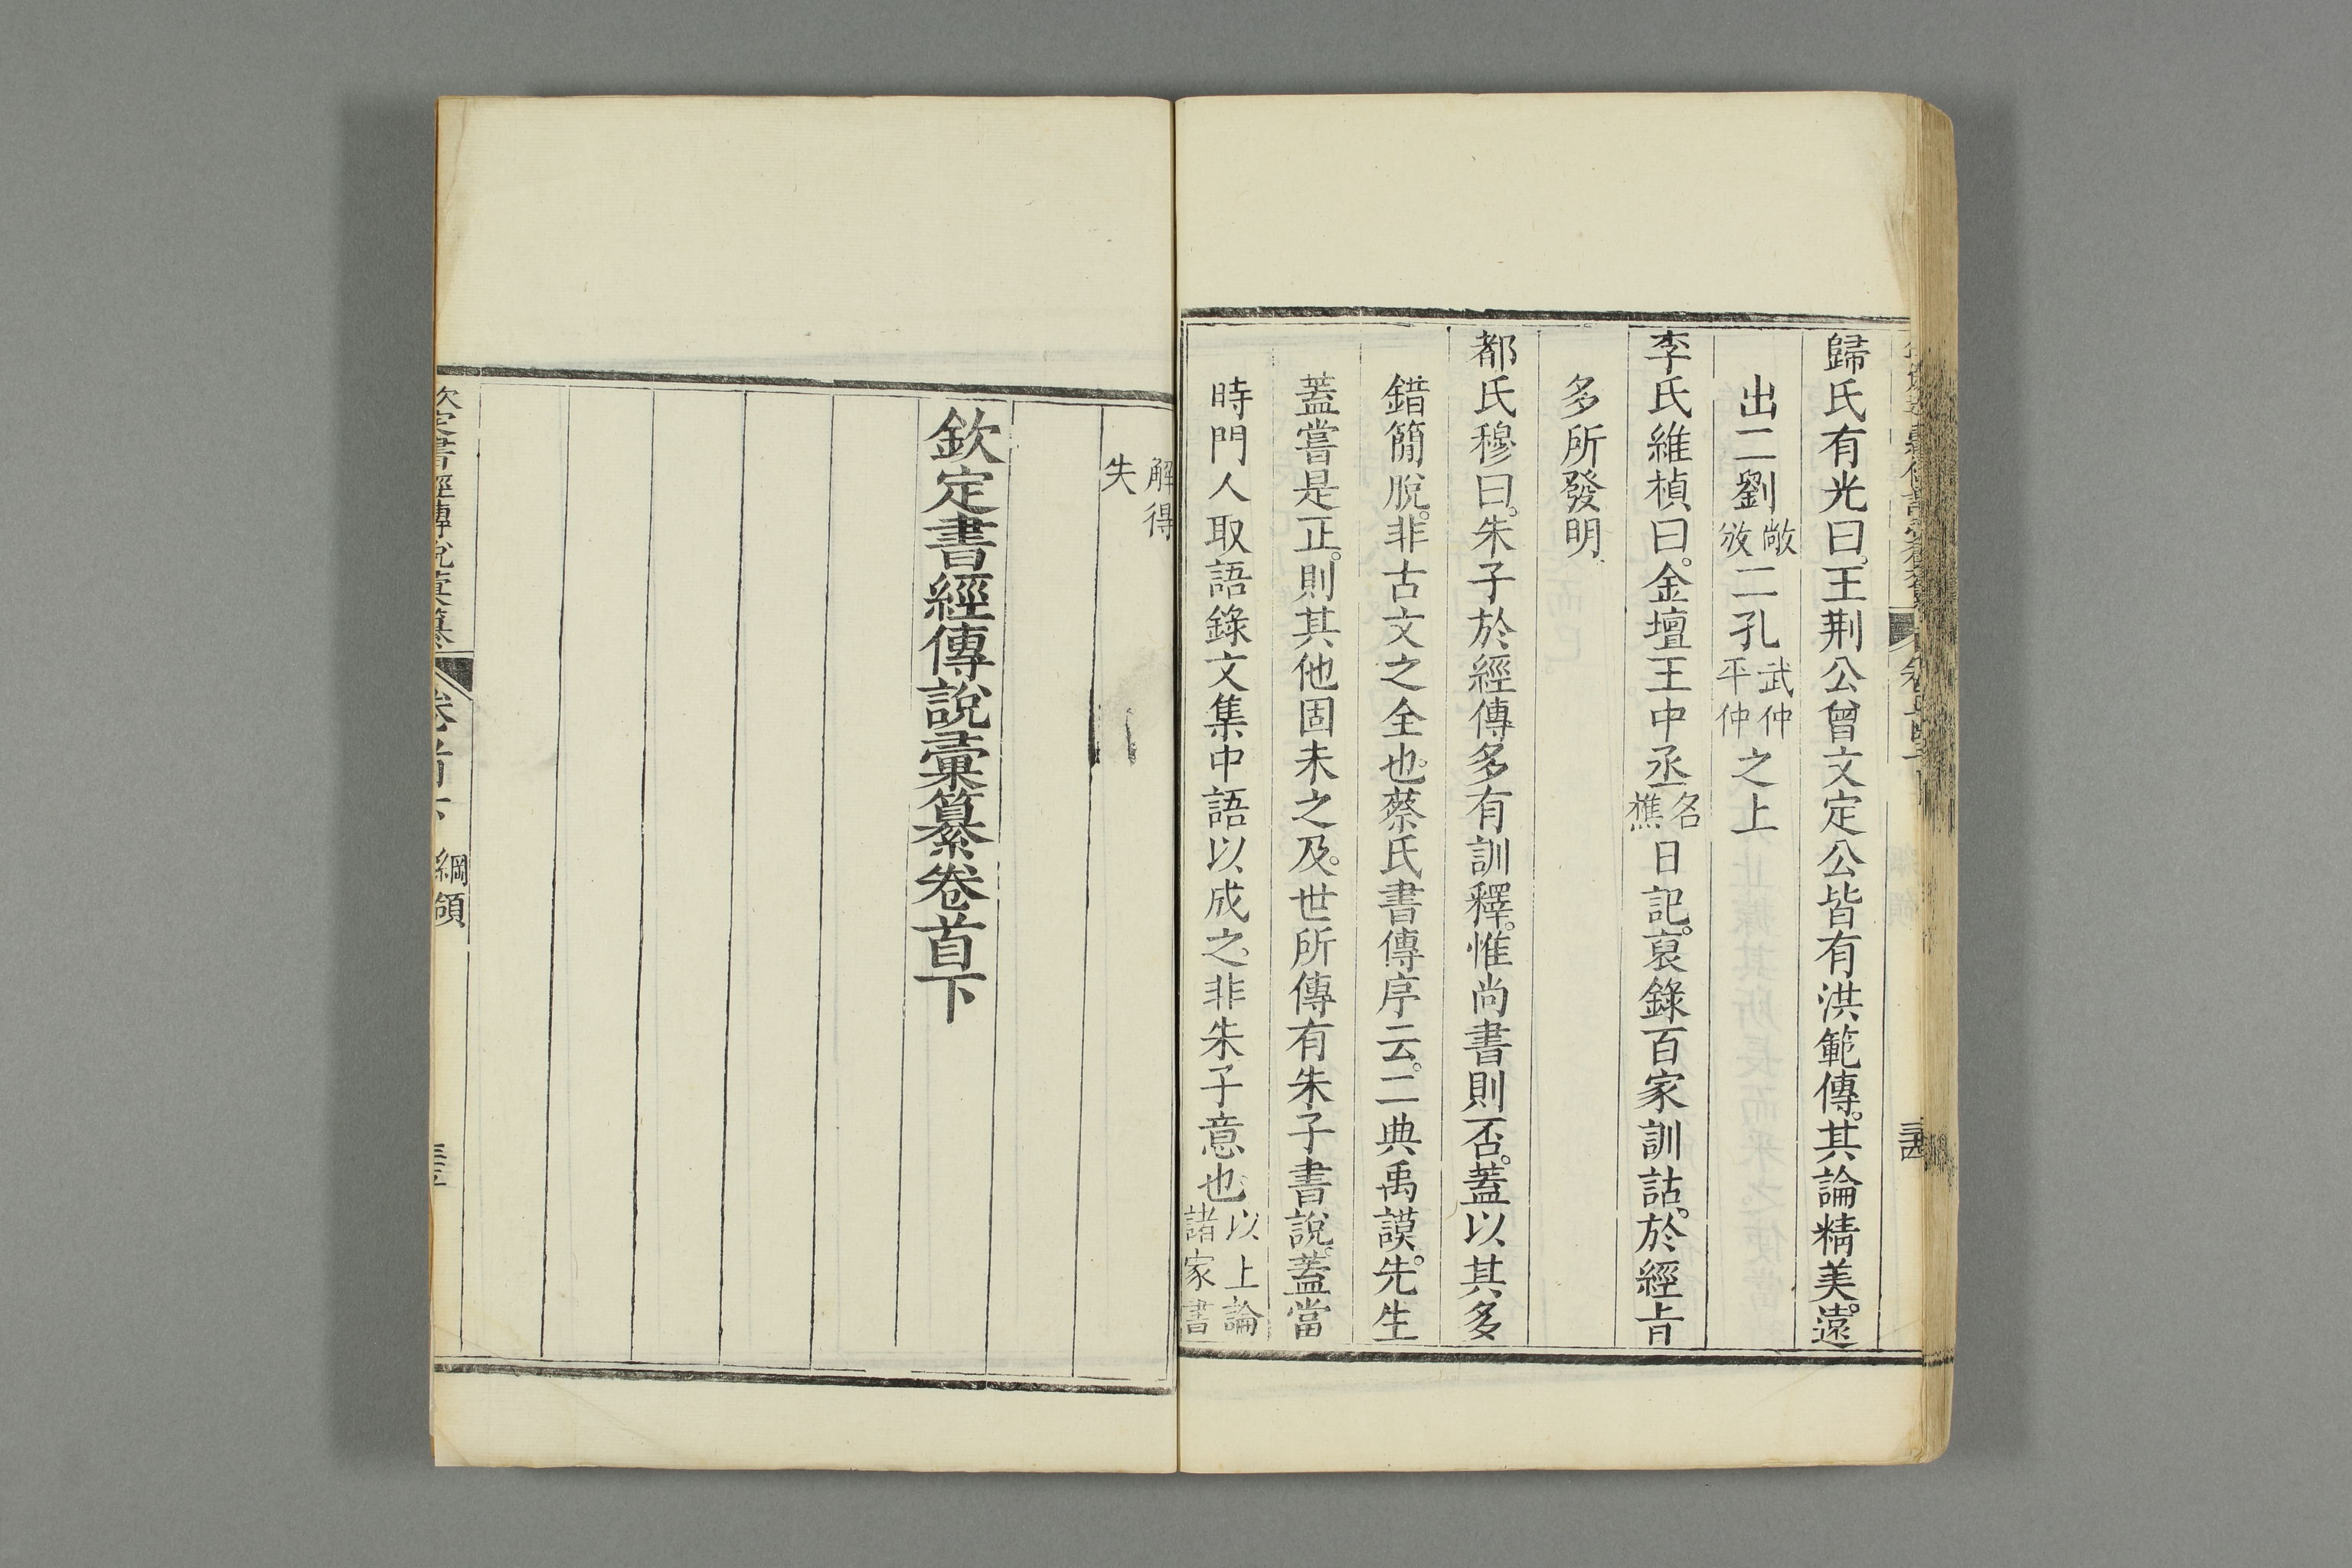 歸氏有光曰。王荆公曾文定公皆有洪範傳。其論精美。遠
出二劉敞攽二孔武仲平仲之上
李氏維楨曰。金壇王中丞名樵日記。裒錄百家訓詁。於經㫖
多所發明
都氏穆曰。朱子於經傳多有訓釋。惟尚書則否。蓋以其多
錯簡脫。非古文之全也。蔡氏書傳序云。二典禹謨。先生
蓋嘗是正。則其他固未之及。世所傳有朱子書說。蓋當
時門人取語錄文集中語以成之。非朱子意也。以上論諸家書
解得失
欽定書經傳說彙纂卷首下
欽定書經傳說彙纂 卷首下 綱領